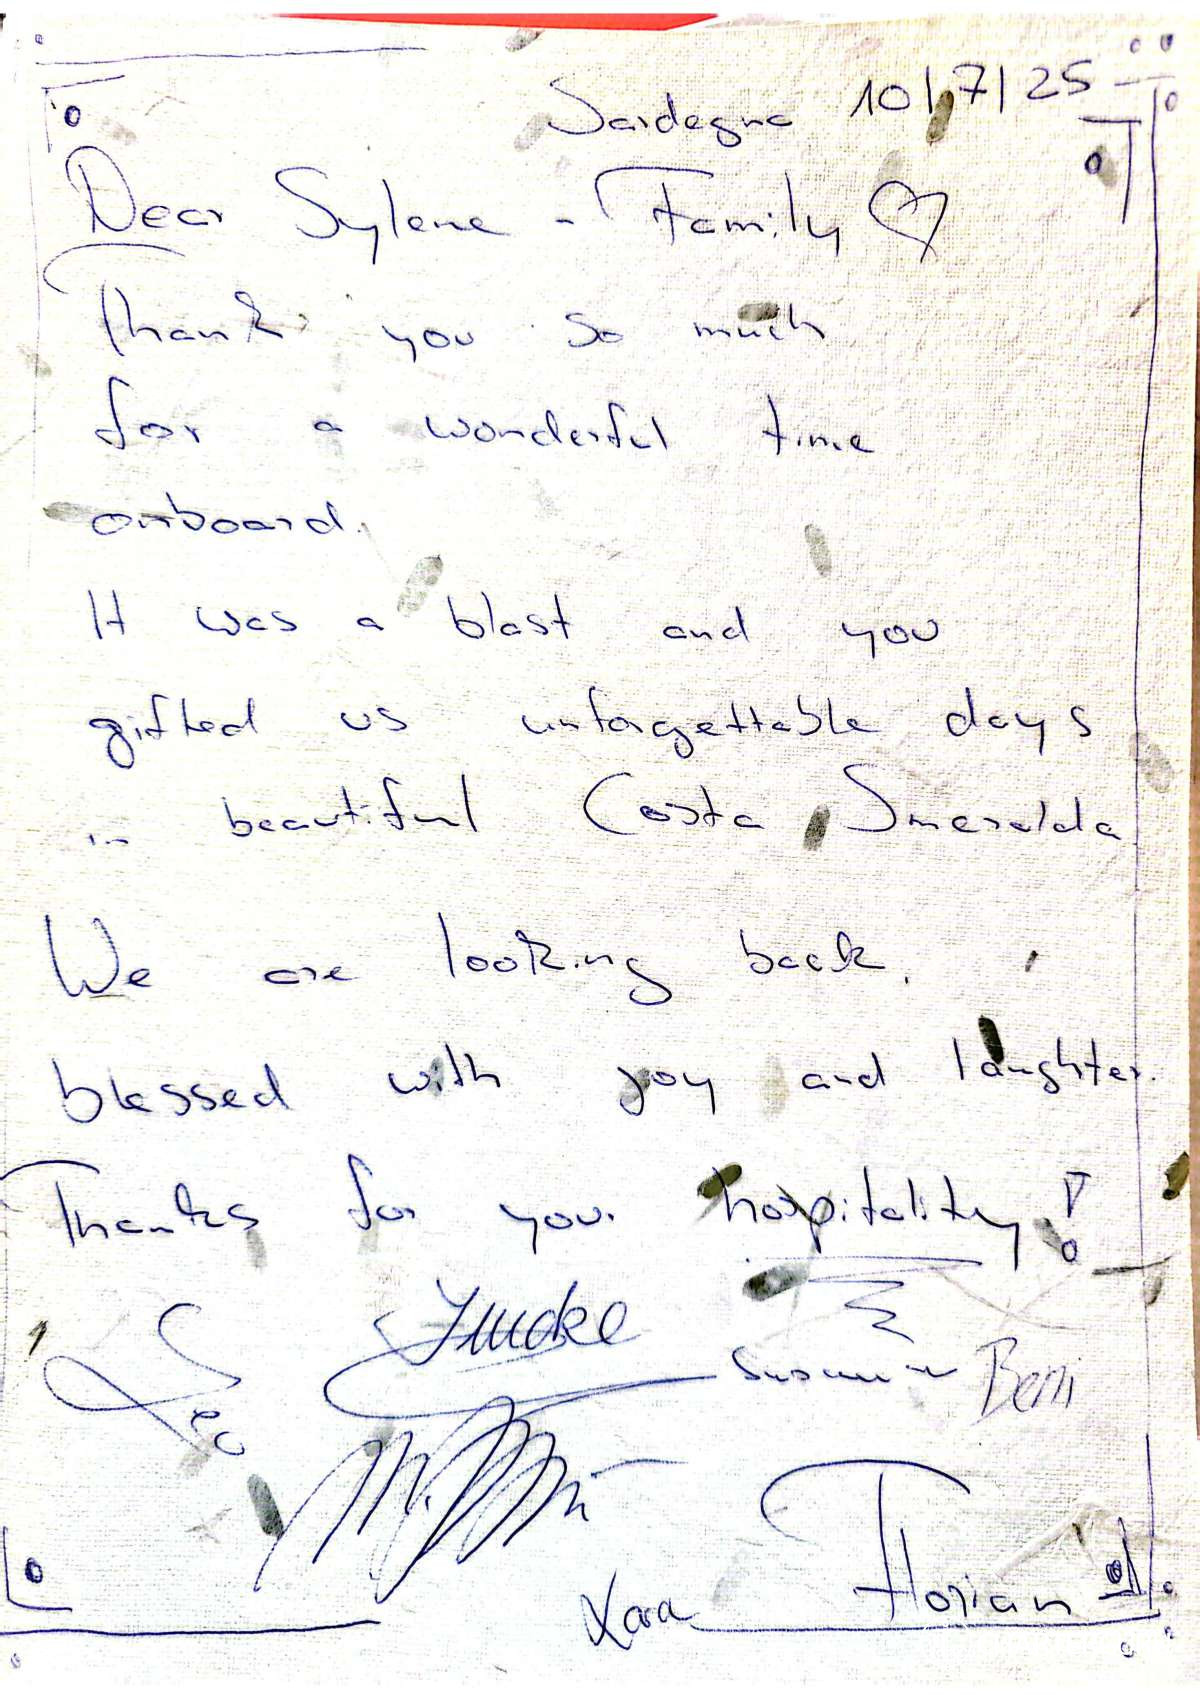 Sardegna 10/7/25
Dear Sylene - Family
Thank you so much
for a wonderful time
onboard.
It was a blast and you
gifted us unforgettable days
in beautiful Costa Smeralda
We are looking back,
blessed with joy and laughter.
Thanks for your hospitality!
Leo
Beni
Xara Florian